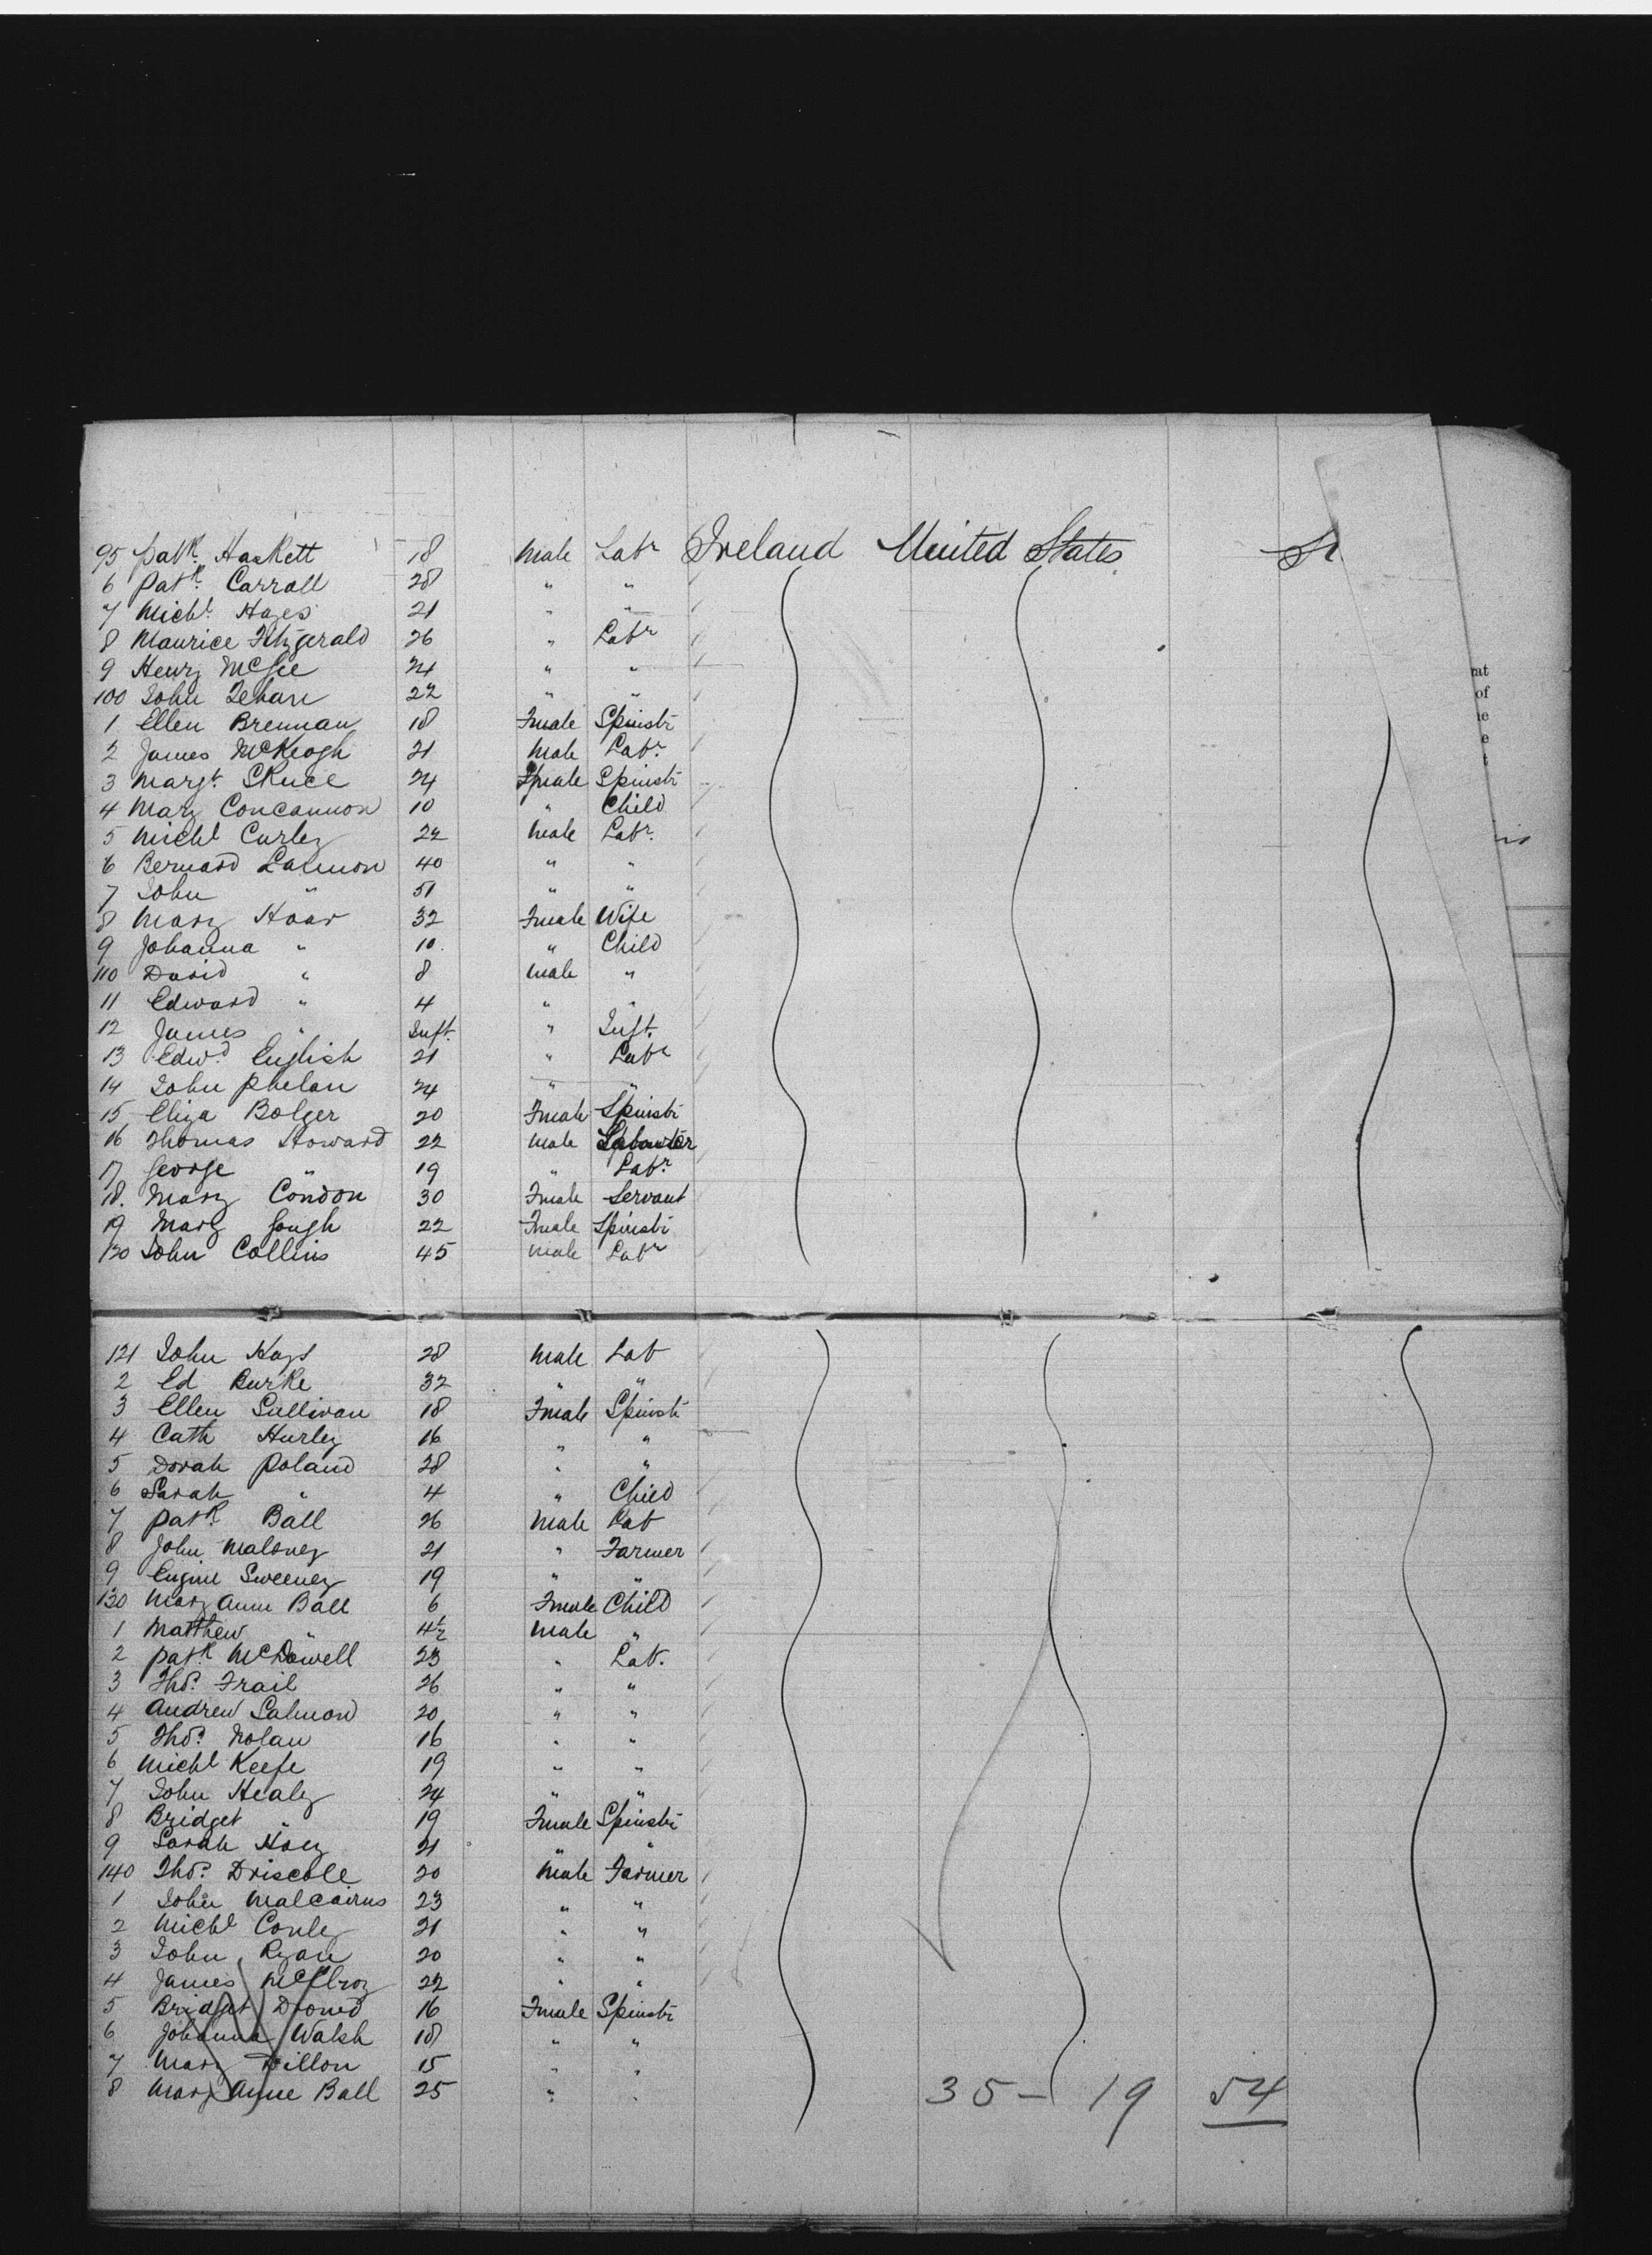 95 Patk. Haskett 18 Male Labr Ireland United States
6 Patk. Carroll 28 " "
7 Michl. Hayes 21 " "
8 Maurice Fitzgerald 26 " Labr
9 Henry McGee 24 " "
100 John Lehan 22 " "
1 Ellen Brennan 18 Fmale Spinstr
2 James McKeogh 21 Male Labr.
3 Margt. Skuce 24 Fmale Spinstr
4 Mary Concannon 10 " Child
5 Michl Curley 22 Male Labr.
6 Bernard Salmon 40 " "
7 John " 51 " "
8 Mary Hoar 32 Fmale Wife
9 Johanna " 10. " Child
110 David " 8 Male "
11 Edward " 4 " "
12 James " Inft. " Inft.
13 Edwd. English 21 " Labr
14 John Phelan 24 " "
15 Eliza Bolger 20 Fmale Spinstr
16 Thomas Howard 22 Male
17 George " 19 " Labr.
18. Mary Condon 30 Fmale Servant
19 Mary Gough 22 Fmale Spinstr
120 John Collins 45 Male Labr
121 John Hays 28 Male Lab
2 Ed Burke 32 " "
3 Ellen Sullivan 18 Fmale Spinstr
4 Cath Hurley 16 " "
5 Dorah Poland 28 " "
6 Sarah " 4 " Child
7 Patk. Ball 26 Male Lab
8 John Maloney 21 " Farmer
9 Eugine Sweeney 19 " "
130 Mary Anne Ball 6 Fmale Child
1 Matthew " 4½ Male "
2 Patk McDowell 23 " Lab.
3 Thos. Frail 26 " "
4 Andrew Salmon 20 " "
5 Thos. Nolan 16 " "
6 Michl Keefe 19 " "
7 John Healy 24 " "
8 Bridget " 19 Fmale Spinstr
9 Sarah Hoey 21 "
140 Thos. Driscole 20 Male Farmer
1 John Malcairns 23 " "
2 Michl Conley 21 " "
3 John Ryan 20 " "
4 James McElroy 22 " "
5 Bridget 16 Fmale Spinstr
6 Johanna Walsh 18 " "
7 Mary Dillon 15 " "
8 Mary Anne Ball 25 " "
35 - 19 54